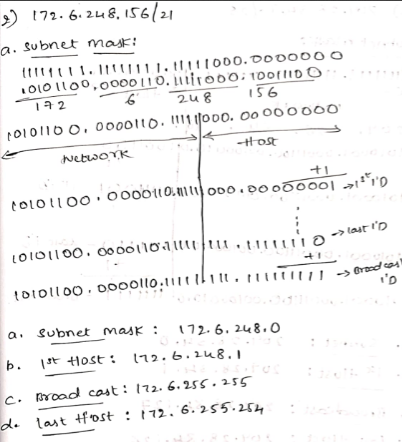 2) 172.6.248.156/21
a. Subnet mask:
11111111.11111111.11111000.0000000
10101100,0000110.11111000.10011100
172 6 248 156
10101100.0000110.11111000.00000000
Network Host
+1
10101100.0000110.11111000.00000001 → 1st I'D
10101100.0000110.11111111.11111110 → last I'D
+1
10101100.0000110.11111111.11111111 → Broadcast I'D
a. Subnet mask : 172.6.248.0
b. 1st Host : 172.6.248.1
c. Broad cast : 172.6.255.255
d. last Host : 172.6.255.254